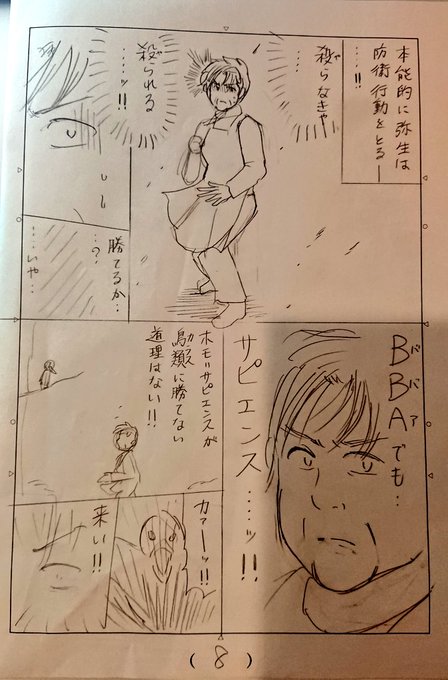 本能的に弥生は
防衛行動をとるー
……!!
殺らなきゃ
や
……
殺られる
や
……ッ!!
勝てるか…
…?
……いや…
BBAでも…
ババア
サピエンス……ッ!!
ホモ=サピエンスが
鳥類に勝てない
カラス
道理はない!!
カァーッ!!
来い!!
(8)